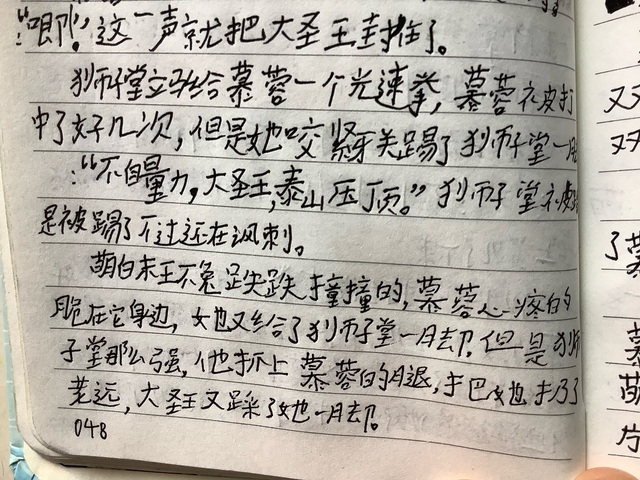 “唧!”这一声就把大圣王封住了。
狮子堂立马给慕蓉一个光速拳,慕蓉衣皮打
中了好几次,但是她咬紧牙关踢了狮子堂一脚
:“不自量力,大圣王,泰山压顶。”狮子堂衣皮
是被踢了不过还在讽刺。
萌白末王不兔跌跌撞撞的,慕蓉心疼的
跪在它身边,她又给了狮子堂一脚,但是狮
子堂那么强,他抓上慕蓉的腿,把她扔了
老远,大圣王又踩了她一脚。
048
又
双
了慕
慕
萌
片